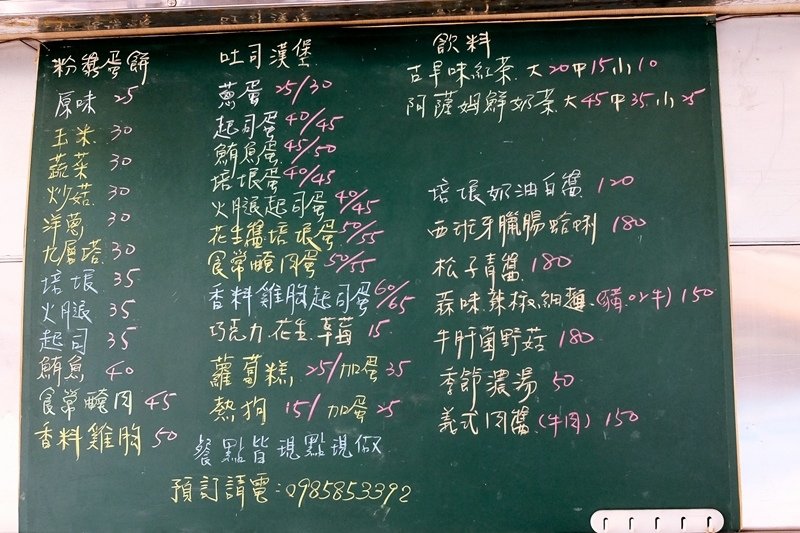 粉漿蛋餅
原味 25
玉米 30
蔬菜 30
炒菇 30
洋蔥 30
九層塔 30
培根 35
火腿 35
起司 35
鮪魚 40
食常醃肉 45
香料雞胸 50
吐司漢堡
蔥蛋 25/30
起司蛋 40/45
鮪魚蛋 45/50
培根蛋 40/45
火腿起司蛋 40/45
花生醬培根蛋 50/55
食常醃肉蛋 50/55
香料雞胸起司蛋 60/65
巧克力.花生.草莓 15
蘿蔔糕 25/加蛋 35
熱狗 15/加蛋 25
餐點皆現點現做
預訂請電:0985853392
飲料
古早味紅茶 大20中15小10
阿薩姆鮮奶茶 大45中35小25
培根奶油白醬 120
西班牙臘腸蛤蜊 180
松子青醬 180
蒜味辣椒細麵 (豬or牛) 150
牛肝菌野菇 180
季節濃湯 50
義式肉醬 (牛肉) 150